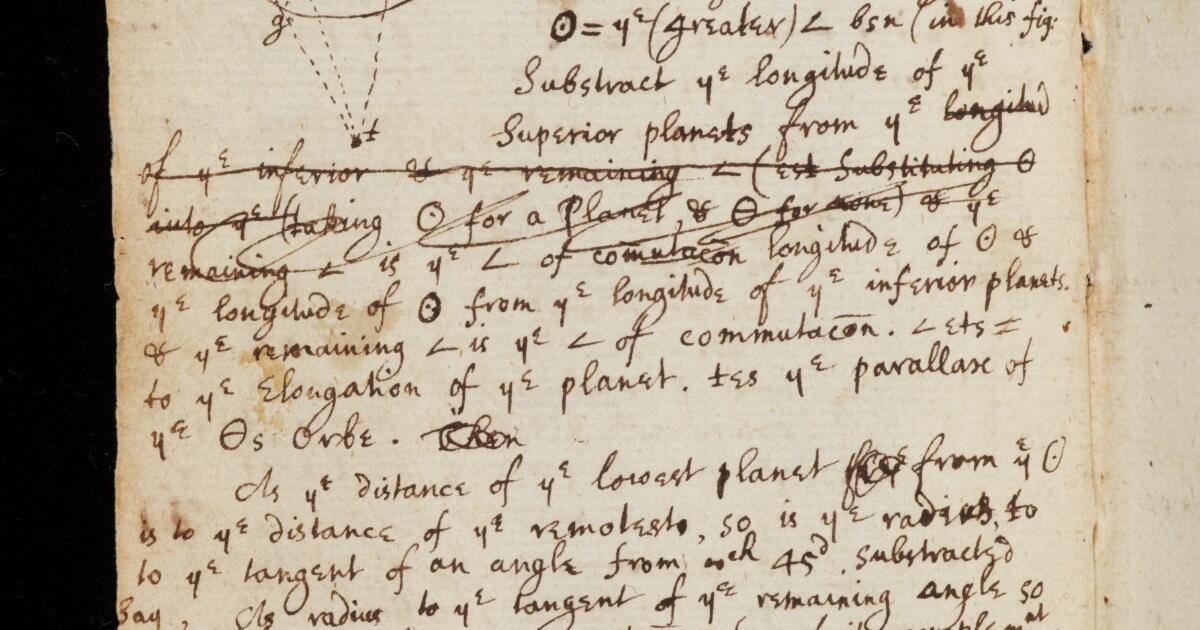 g
t
ʘ = yᵉ (greater) ∠ bsn (in this fig:
Substract yᵉ longitude of yᵉ
Superior planets from yᵉ longitud
of yᵉ inferior & yᵉ remaining ∠ (est Substituting Ꮎ
into yᵉ (taking ʘ for a Planet, & Ꮎ for none) & yᵉ
remaining ∠ is yᵉ ∠ of com̄utacōn longitude of ʘ &
yᵉ longitude of ʘ from yᵉ longitude of yᵉ inferior planets.
& yᵉ remaining ∠ is yᵉ ∠ of commutacōn. ∠ ets =
to yᵉ Elongation of yᵉ planet. tes yᵉ parallax of
yᵉ Ꮎs Orbe. Then
As yᵉ distance of yᵉ lowest planet from yᵉ ʘ
is to yᵉ distance of yᵉ remotest, so is yᵉ radius, to
to yᵉ tangent of an angle from wᶜʰ 45ᵈ. substracted
Say, As radius to yᵉ tangent of yᵉ remaining angle so